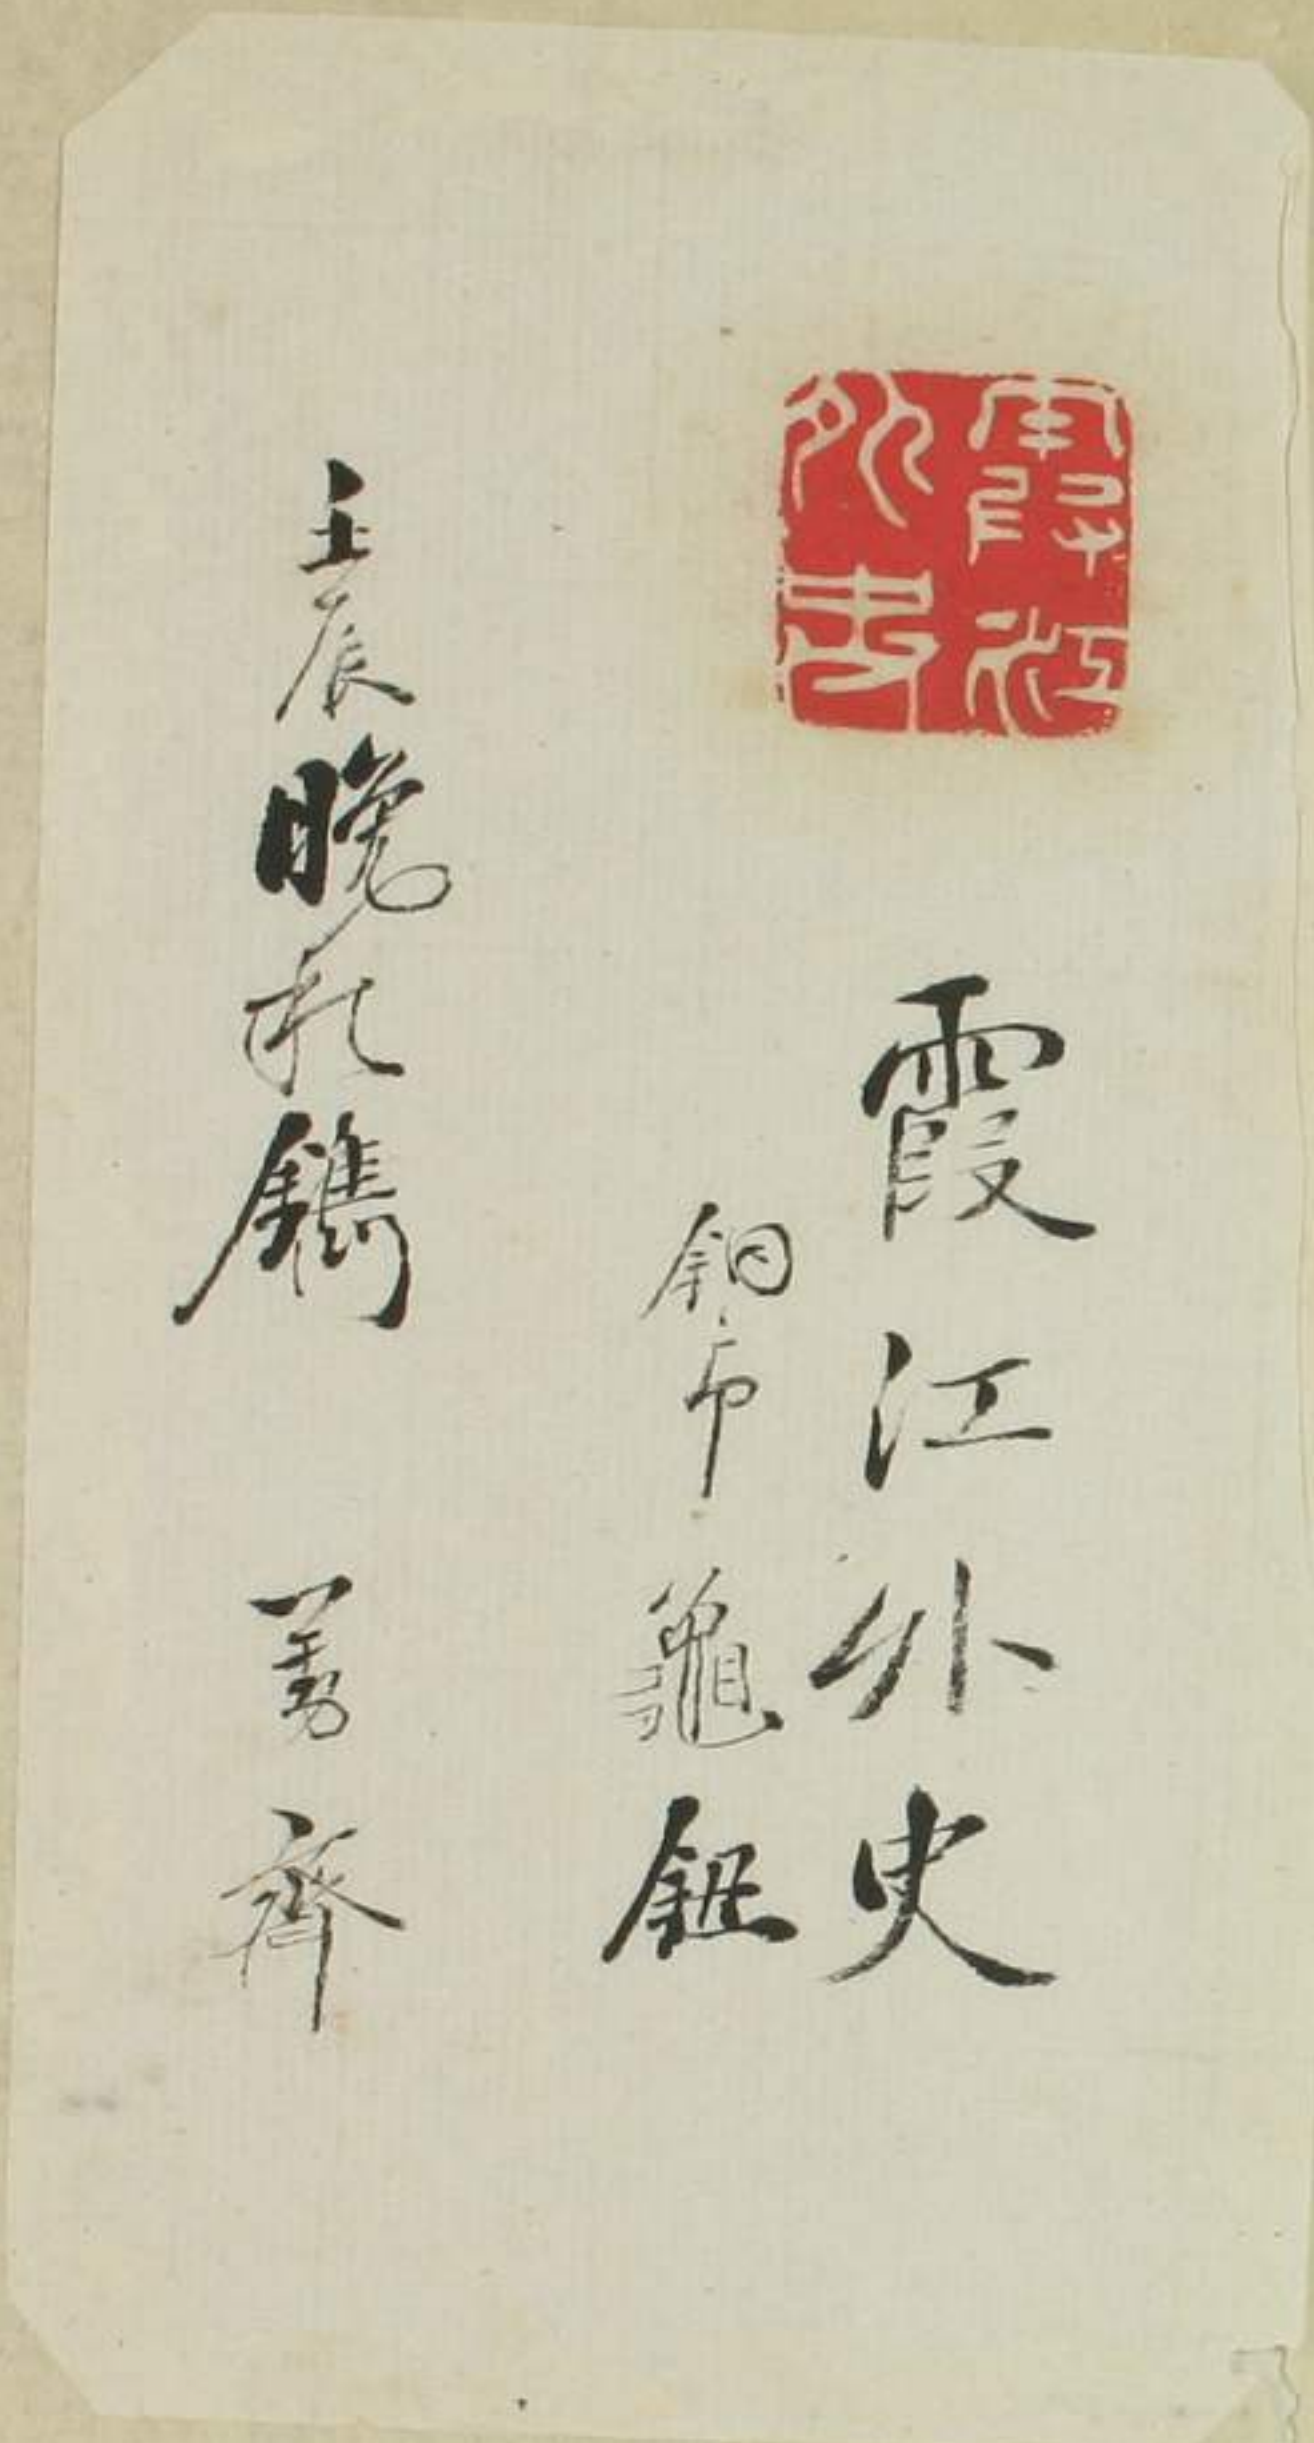 霞江外史
霞江外史
銅印龜鈕
壬辰晚秋鐫 齋